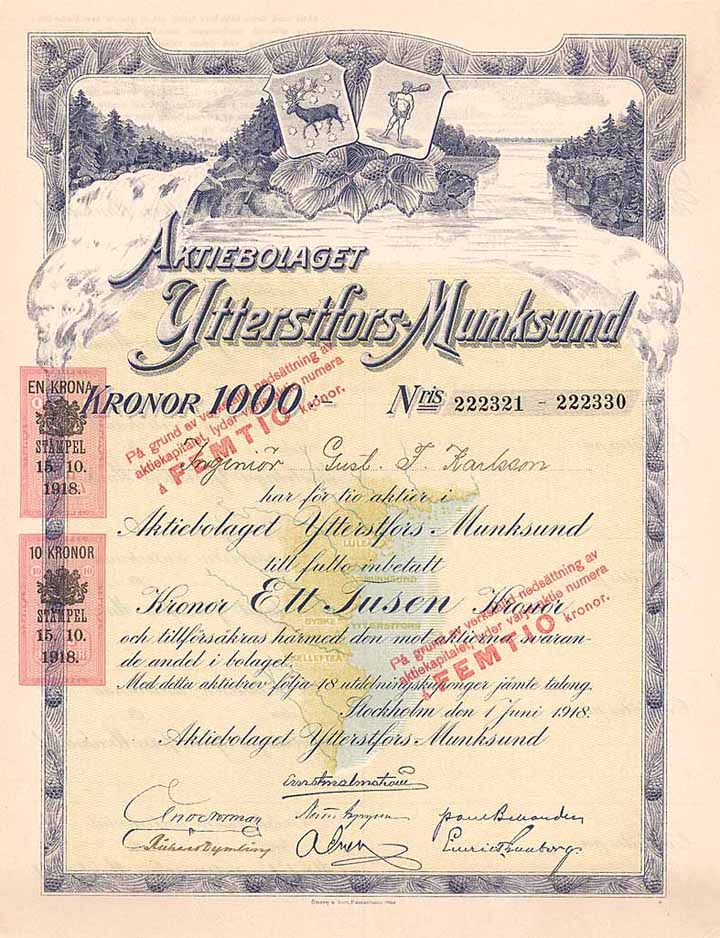 AKTIEBOLAGET
Ytterstfors-Munksund
KRONOR 1000.:-
Nris 222321 - 222330
EN KRONA
1
STÄMPEL
15. 10.
1918.
På grund av verkställd nedsättning av
aktiekapitalet, lyder varje aktie numera
å FEMTIO kronor.
Ingeniör Gust. F. Karlsson
har för tio aktier i
Aktiebolaget Ytterstfors-Munksund
till fullo inbetalt
Kronor Ett Tusen Kronor
och tillförsäkras härmed den mot aktierna svaran-
de andel i bolaget.
Med detta aktiebrev följa 18 utdelningskuponger jämte talong.
Stockholm den 1 Juni 1918.
Aktiebolaget Ytterstfors-Munksund
10 KRONOR
10 10
STÄMPEL
15. 10.
1918.
På grund av verkställd nedsättning av
aktiekapitalet, lyder varje aktie numera
å FEMTIO kronor.
LULEÅ
MUNKSUND
BYSKE
YTTERSTFORS
SKELLEFTEÅ